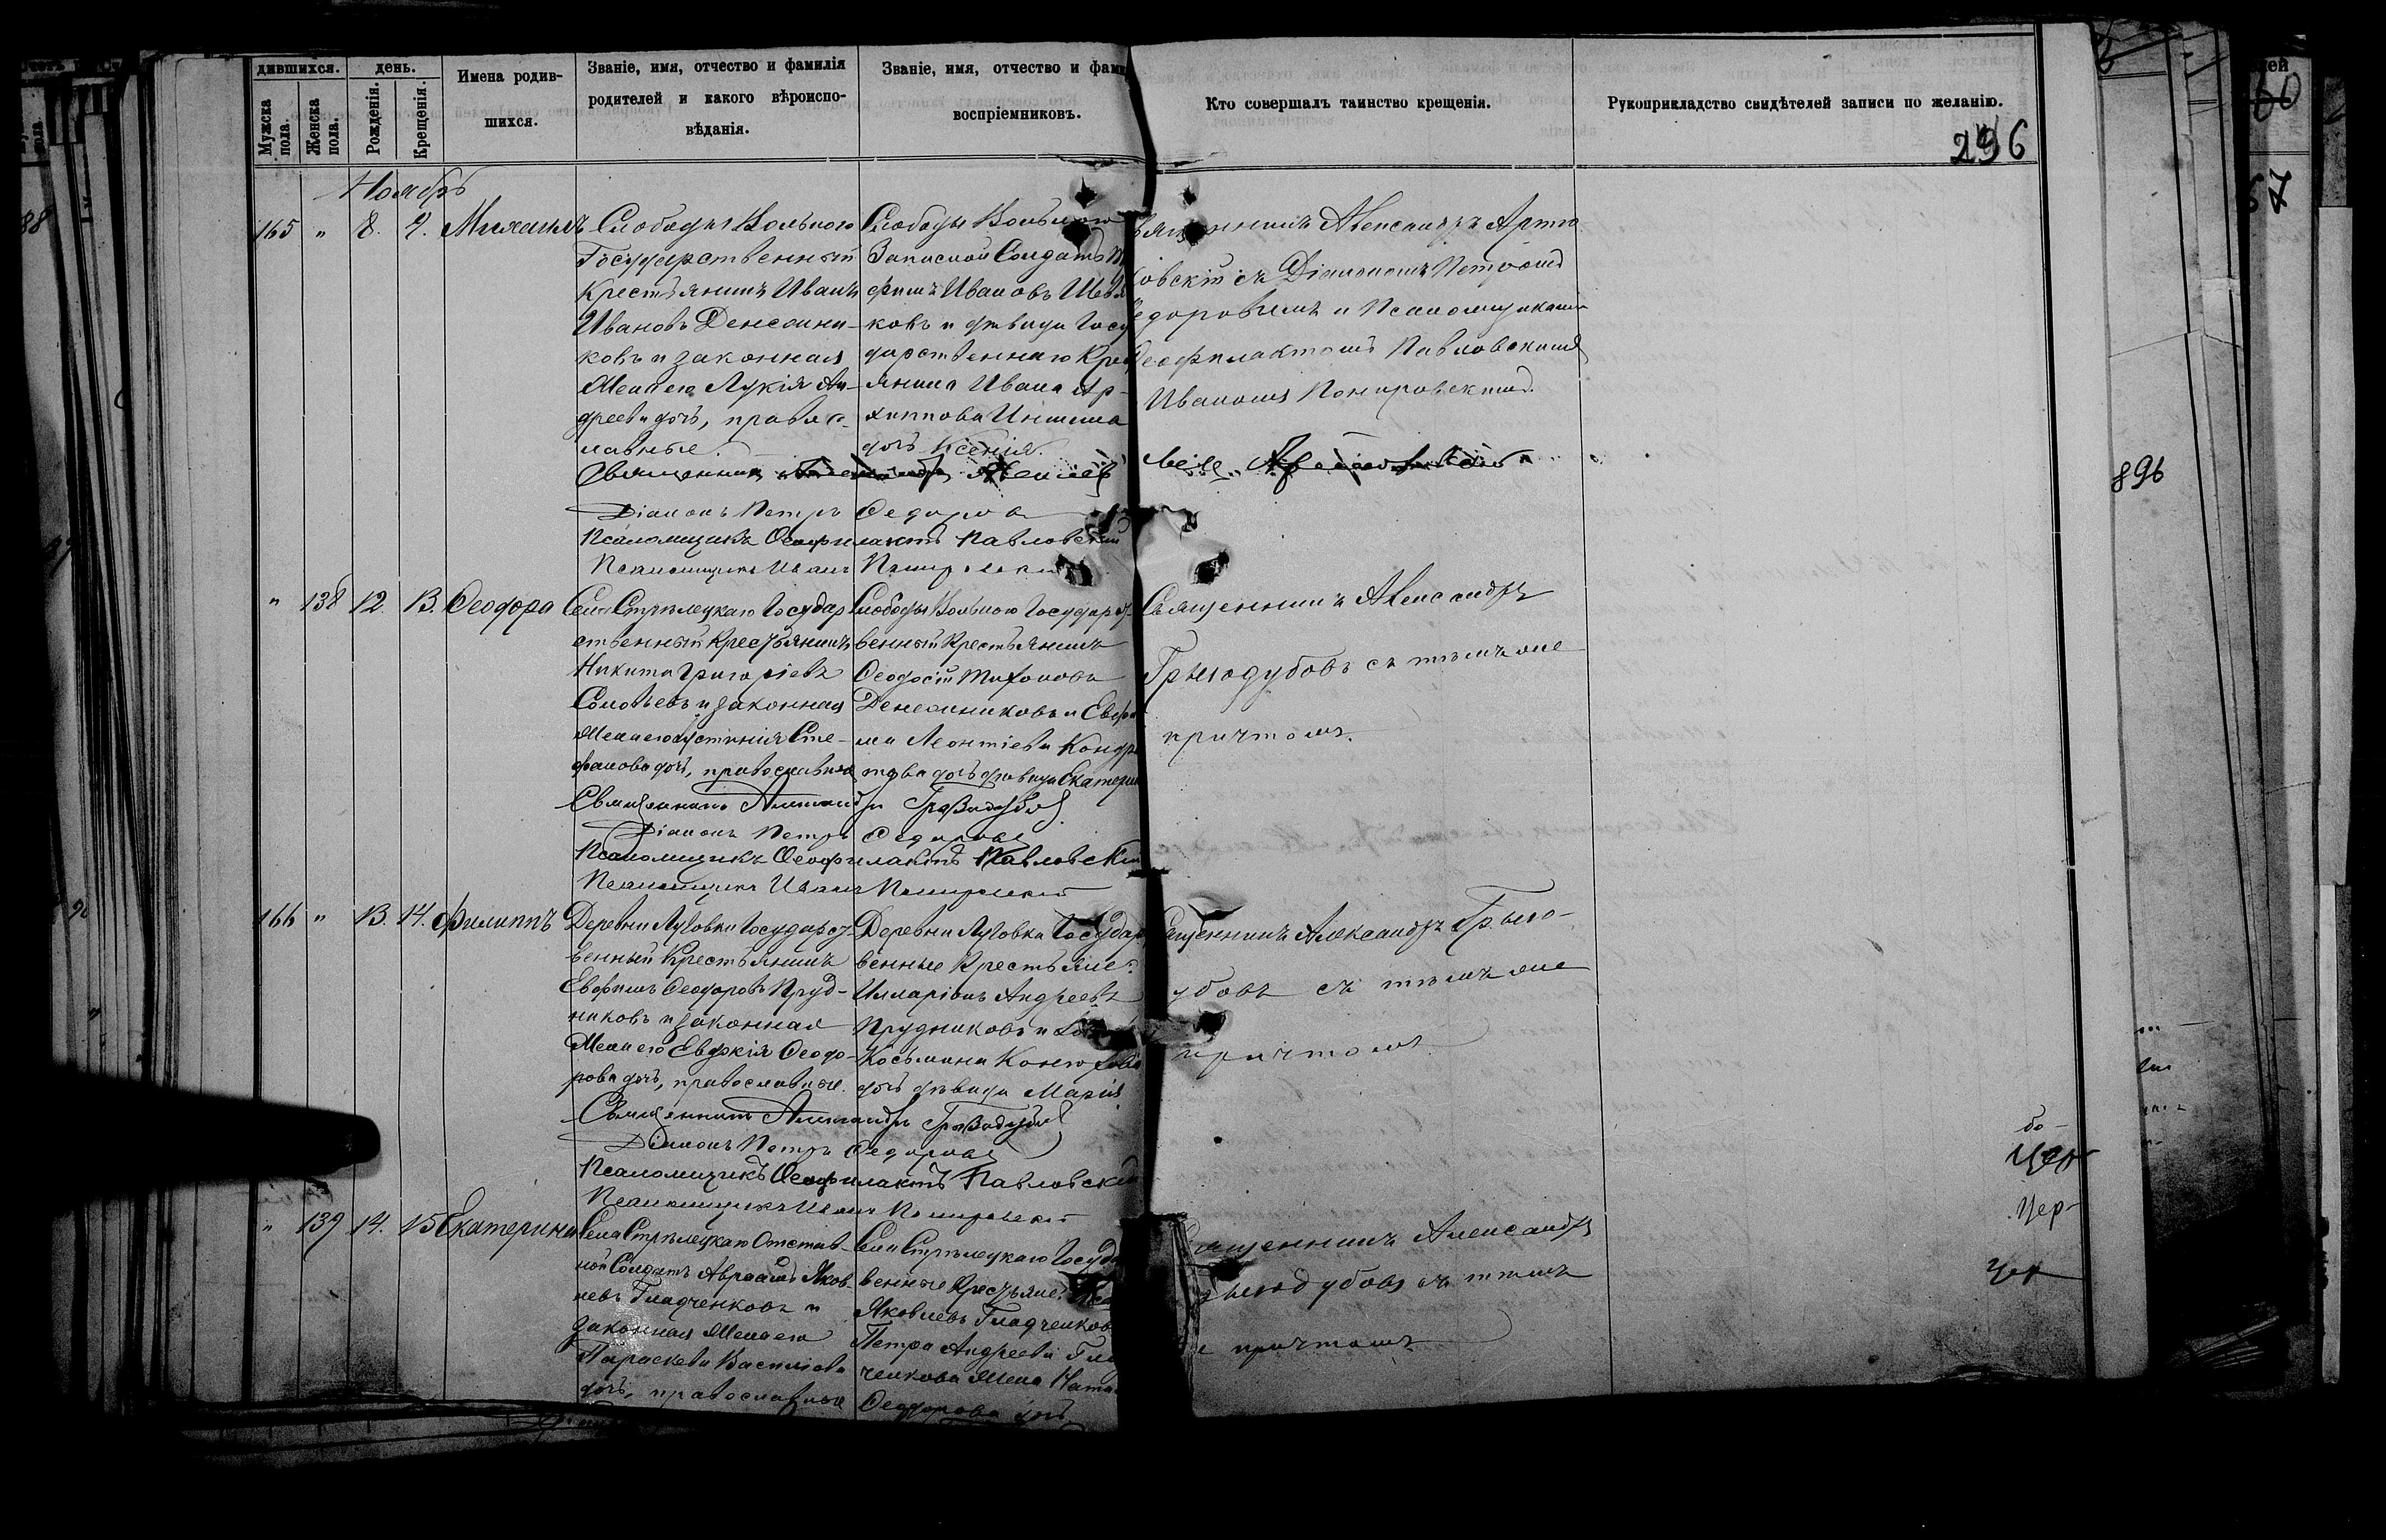 дившихся.
день.
Мужска пола.
Женска пола.
Рожденія.
Крещенія.
Имена родив-
шихся.
Званіе, имя, отчество и фамилія
родителей и какого вѣроиспо-
вѣданія.
Званіе, имя, отчество и фами
воспріемниковъ.
Кто совершалъ таинство крещенія.
Рукоприкладство свидѣтелей записи по желанію.
296
Ноябрь
165 " 8. 9. Михаилъ
Слободы Вольного
Государственный
Крестьянинъ Иванъ
Ивановъ Денесени-
ковъ и законная
Жена его Лукія Ан-
дреева дочь, правос-
лавные.
Слободы Вольного
Записной Солдатъ
фимъ Ивановъ Шевл
ковъ и дѣвица Госу
дарственнаго Крес
янина Ивана Ар-
хиппова
дочь Ксенія.
Александръ Арто
овскій съ Діакономъ Петромъ
едоровымъ и Псаломщиками
Феофилактомъ Павловскимъ
Иваномъ Покровскимъ.
Священникъ Алексѣй
Діаконъ Петръ Ѳедоровъ
Псаломщикъ Ѳеофилактъ Павловскій
Псаломщикъ Иванъ Покровскій
" 138 12. 13. Ѳеодора
Села Стрѣлецкаго Государ
ственный Крестьянинъ
Никита Григоріевъ
Соловьевъ и законная
Жена его Устинія Сте-
фанова дочь, православные
Слободы Вольного Государст-
венный Крестьянинъ
Ѳеодосій Тихоновъ
Денесениковъ и Евфи
ма Леонтіева Кондра
това дочь дѣвица Екатерин
Священникъ Александръ
Грыводубовъ съ тѣмъ же
причтомъ.
Священникъ Александръ Грѣводубовъ
Діаконъ Петръ Ѳедоровъ
Псаломщикъ Ѳеофилактъ Павловскій
Псаломщикъ Иванъ Покровскій
166 " 13. 14. Филиппъ
Деревни Луговки Государст-
венный Крестьянинъ
Евфимъ Ѳеодоровъ Пруд-
никовъ и законная
Жена его Евфкія Ѳеодо-
рова дочь, православные.
Деревни Луговки Государ
венные Крестьяне:
Илларіонъ Андреевъ
Прудниковъ и
Косьмина Конюхова
дочь дѣвица Марія.
ященникъ Александръ Грыво-
убовъ съ тѣмъ же
причтомъ
Священникъ Александръ Грѣводубовъ
Діаконъ Петръ Ѳедоровъ
Псаломщикъ Ѳеофилактъ Павловскій
Псаломщикъ Иванъ Покровскій
" 139 14. 15 Екатерина
Села Стрѣлецкаго Отстав-
ной Солдатъ Авраамъ Яков-
левъ Гладченковъ и
законная Жена его
Параскева Василіева
дочь, православные
Села Стрѣлецкаго Госуда
венные Крестьяне:
Яковлевъ Гладченков
Петра Андреева Гла
ченкова Жена Ната
Ѳеодорова дочь
ященникъ Александръ
ыводубовъ съ тѣмъ
е причтомъ
896
бо-
Цер-
Цер
67